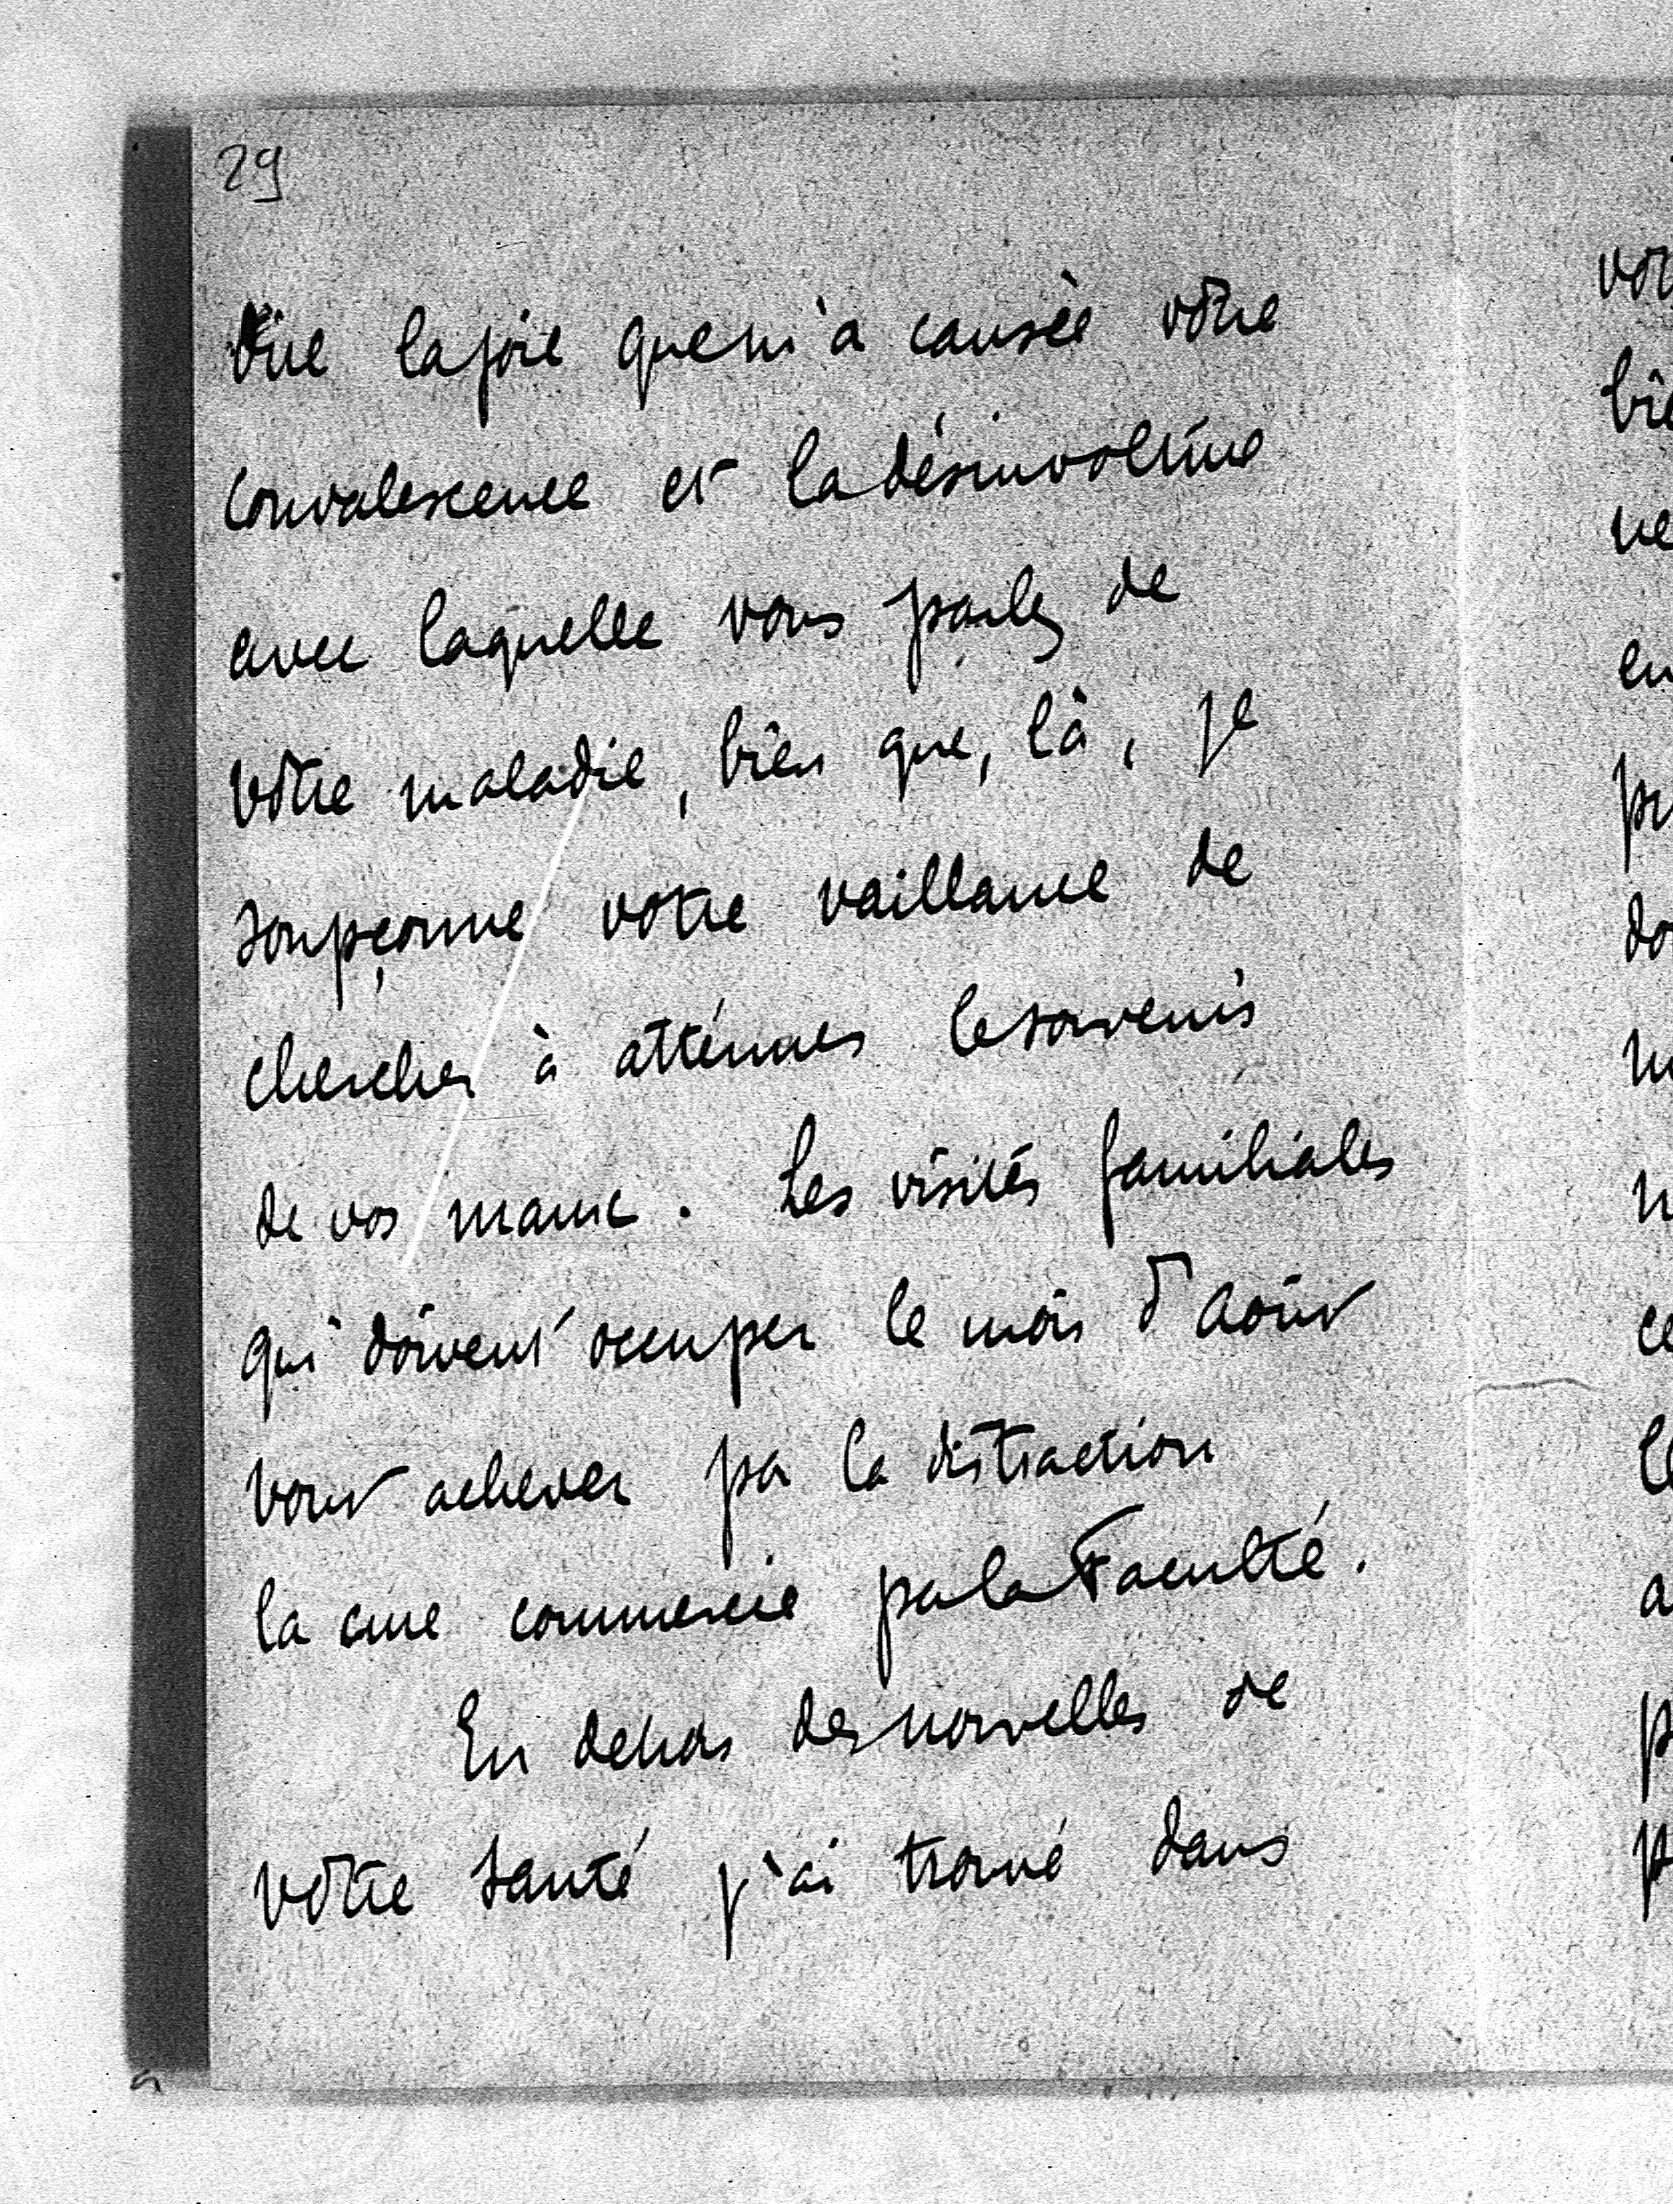 29
dire la joie que m'a causée votre
convalescence et la désinvolture
avec laquelle vous parlez de
votre maladie, bien que, là, je
soupçonne votre vaillance de
chercher à atténuer le souvenir
de vos maux. Les visites familiales
qui doivent occuper le mois d'août
vont achever par la distraction
la cure commencée par la Faculté.
En dehors des nouvelles de
votre santé j'ai trouvé dans